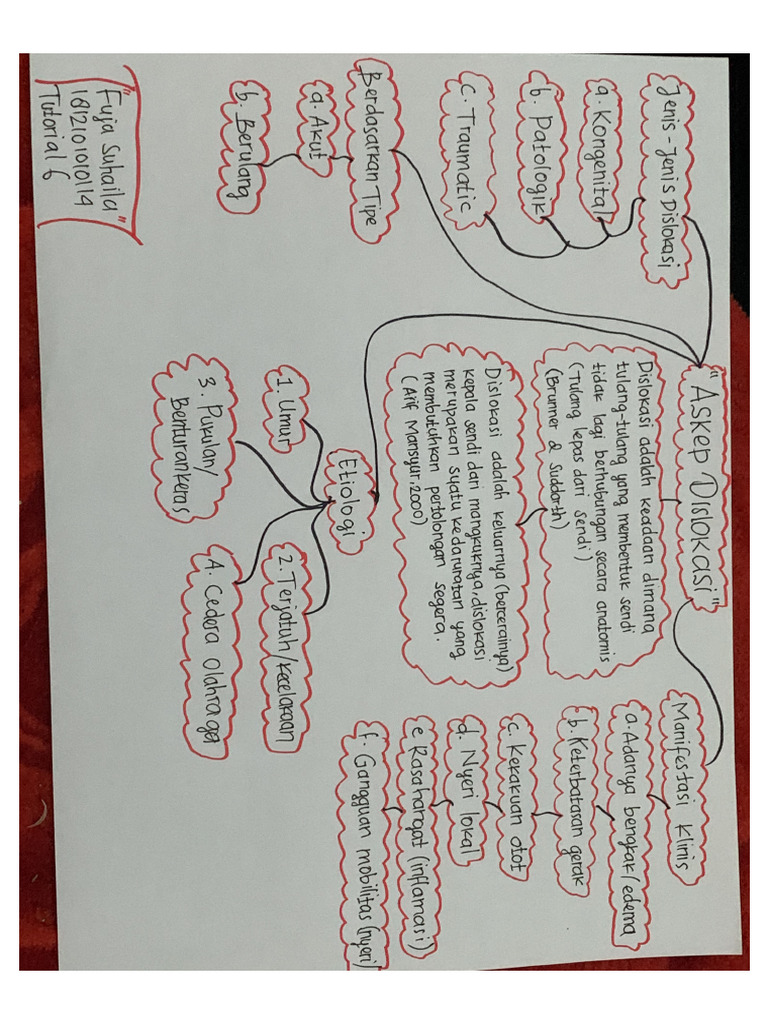 "Askep Dislokasi"
Jenis-Jenis Dislokasi
a. Kongenital
b. Patologik
c. Traumatic
Berdasarkan Tipe
a. Akut
b. Berulang
Dislokasi adalah keadaan dimana
tulang-tulang yang membentuk sendi
tidak lagi berhubungan secara anatomis
(Tulang lepas dari sendi)
(Brunner & Suddarth)
Dislokasi adalah keluarnya (bercerainya)
kepala sendi dari mangkuknya, dislokasi
merupakan syatu kedaruratan yang
membutuhkan pertolongan segera.
(Arif Mansyur, 2000)
Etiologi
1. Umur
2. Terjatuh/kecelakaan
3. Pukulan/
Benturan keras
4. Cedera Olahraga
Manifestasi Klinis
a. Adanya bengkak/edema
b. Keterbatasan gerak
c. Kekakuan otot
d. Nyeri lokal
e. Rasa hangat (inflamasi)
f. Gangguan mobilitas (nyeri)
"Fuja Suhaila"
181210101119
Tutorial 6